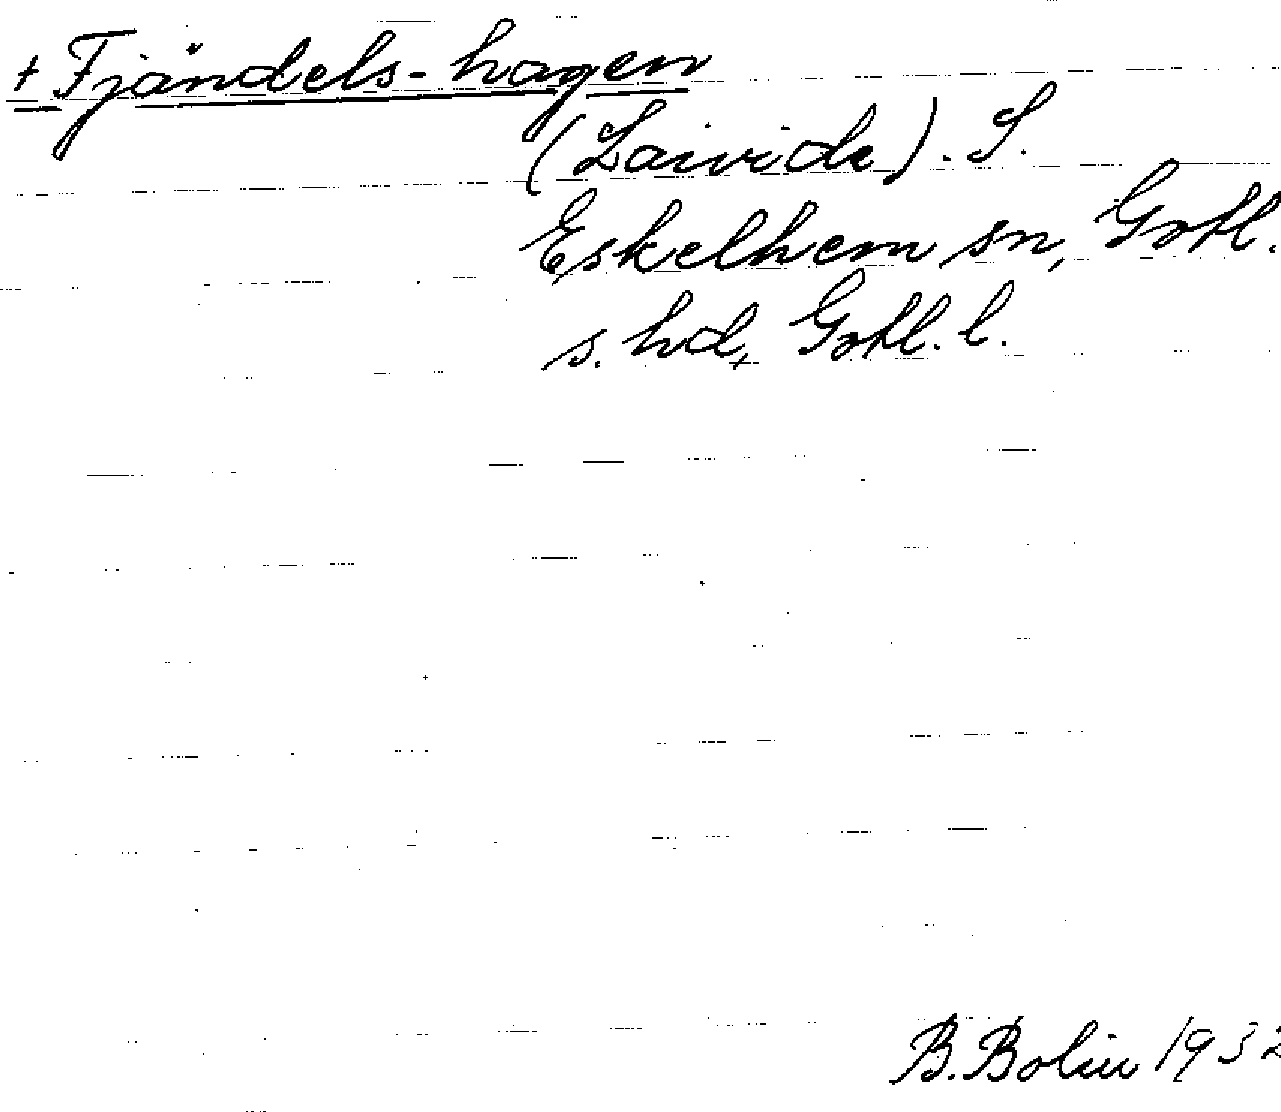 + Fjändels-hagen
(Laivide). S.
Eskelhem sn, Gotl.
s. hd, Gotl. l.
B. Bolin 1932